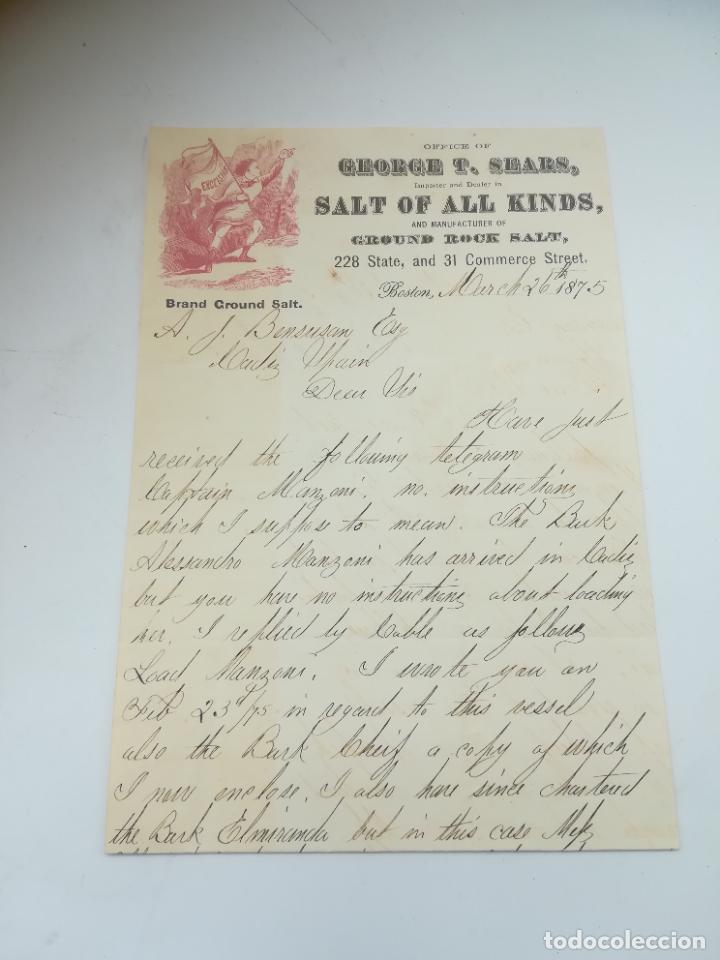 EXCELSIOR
Brand Ground Salt.
OFFICE OF
GEORGE T. SEARS,
Importer and Dealer in
SALT OF ALL KINDS,
AND MANUFACTURER OF
GROUND ROCK SALT,
228 State, and 31 Commerce Street.
Boston, March 26th 1875
A. J. Bensusan Esq
Cadiz Spain
Dear Sir
Have just
received the following telegram
Captain Manzoni. no. instructions
which I suppose to mean. The Bark
Alessandro Manzoni has arrived in Cadiz
but you have no instructions about loading
her. I replied by Cable as follows
Load Manzoni. I wrote you on
Feb 23d/75 in regard to this vessel
also the Bark Cheif a copy of which
I now enclose. I also have since chartered
the Bark Elmiranda but in this case
todocoleccion.net